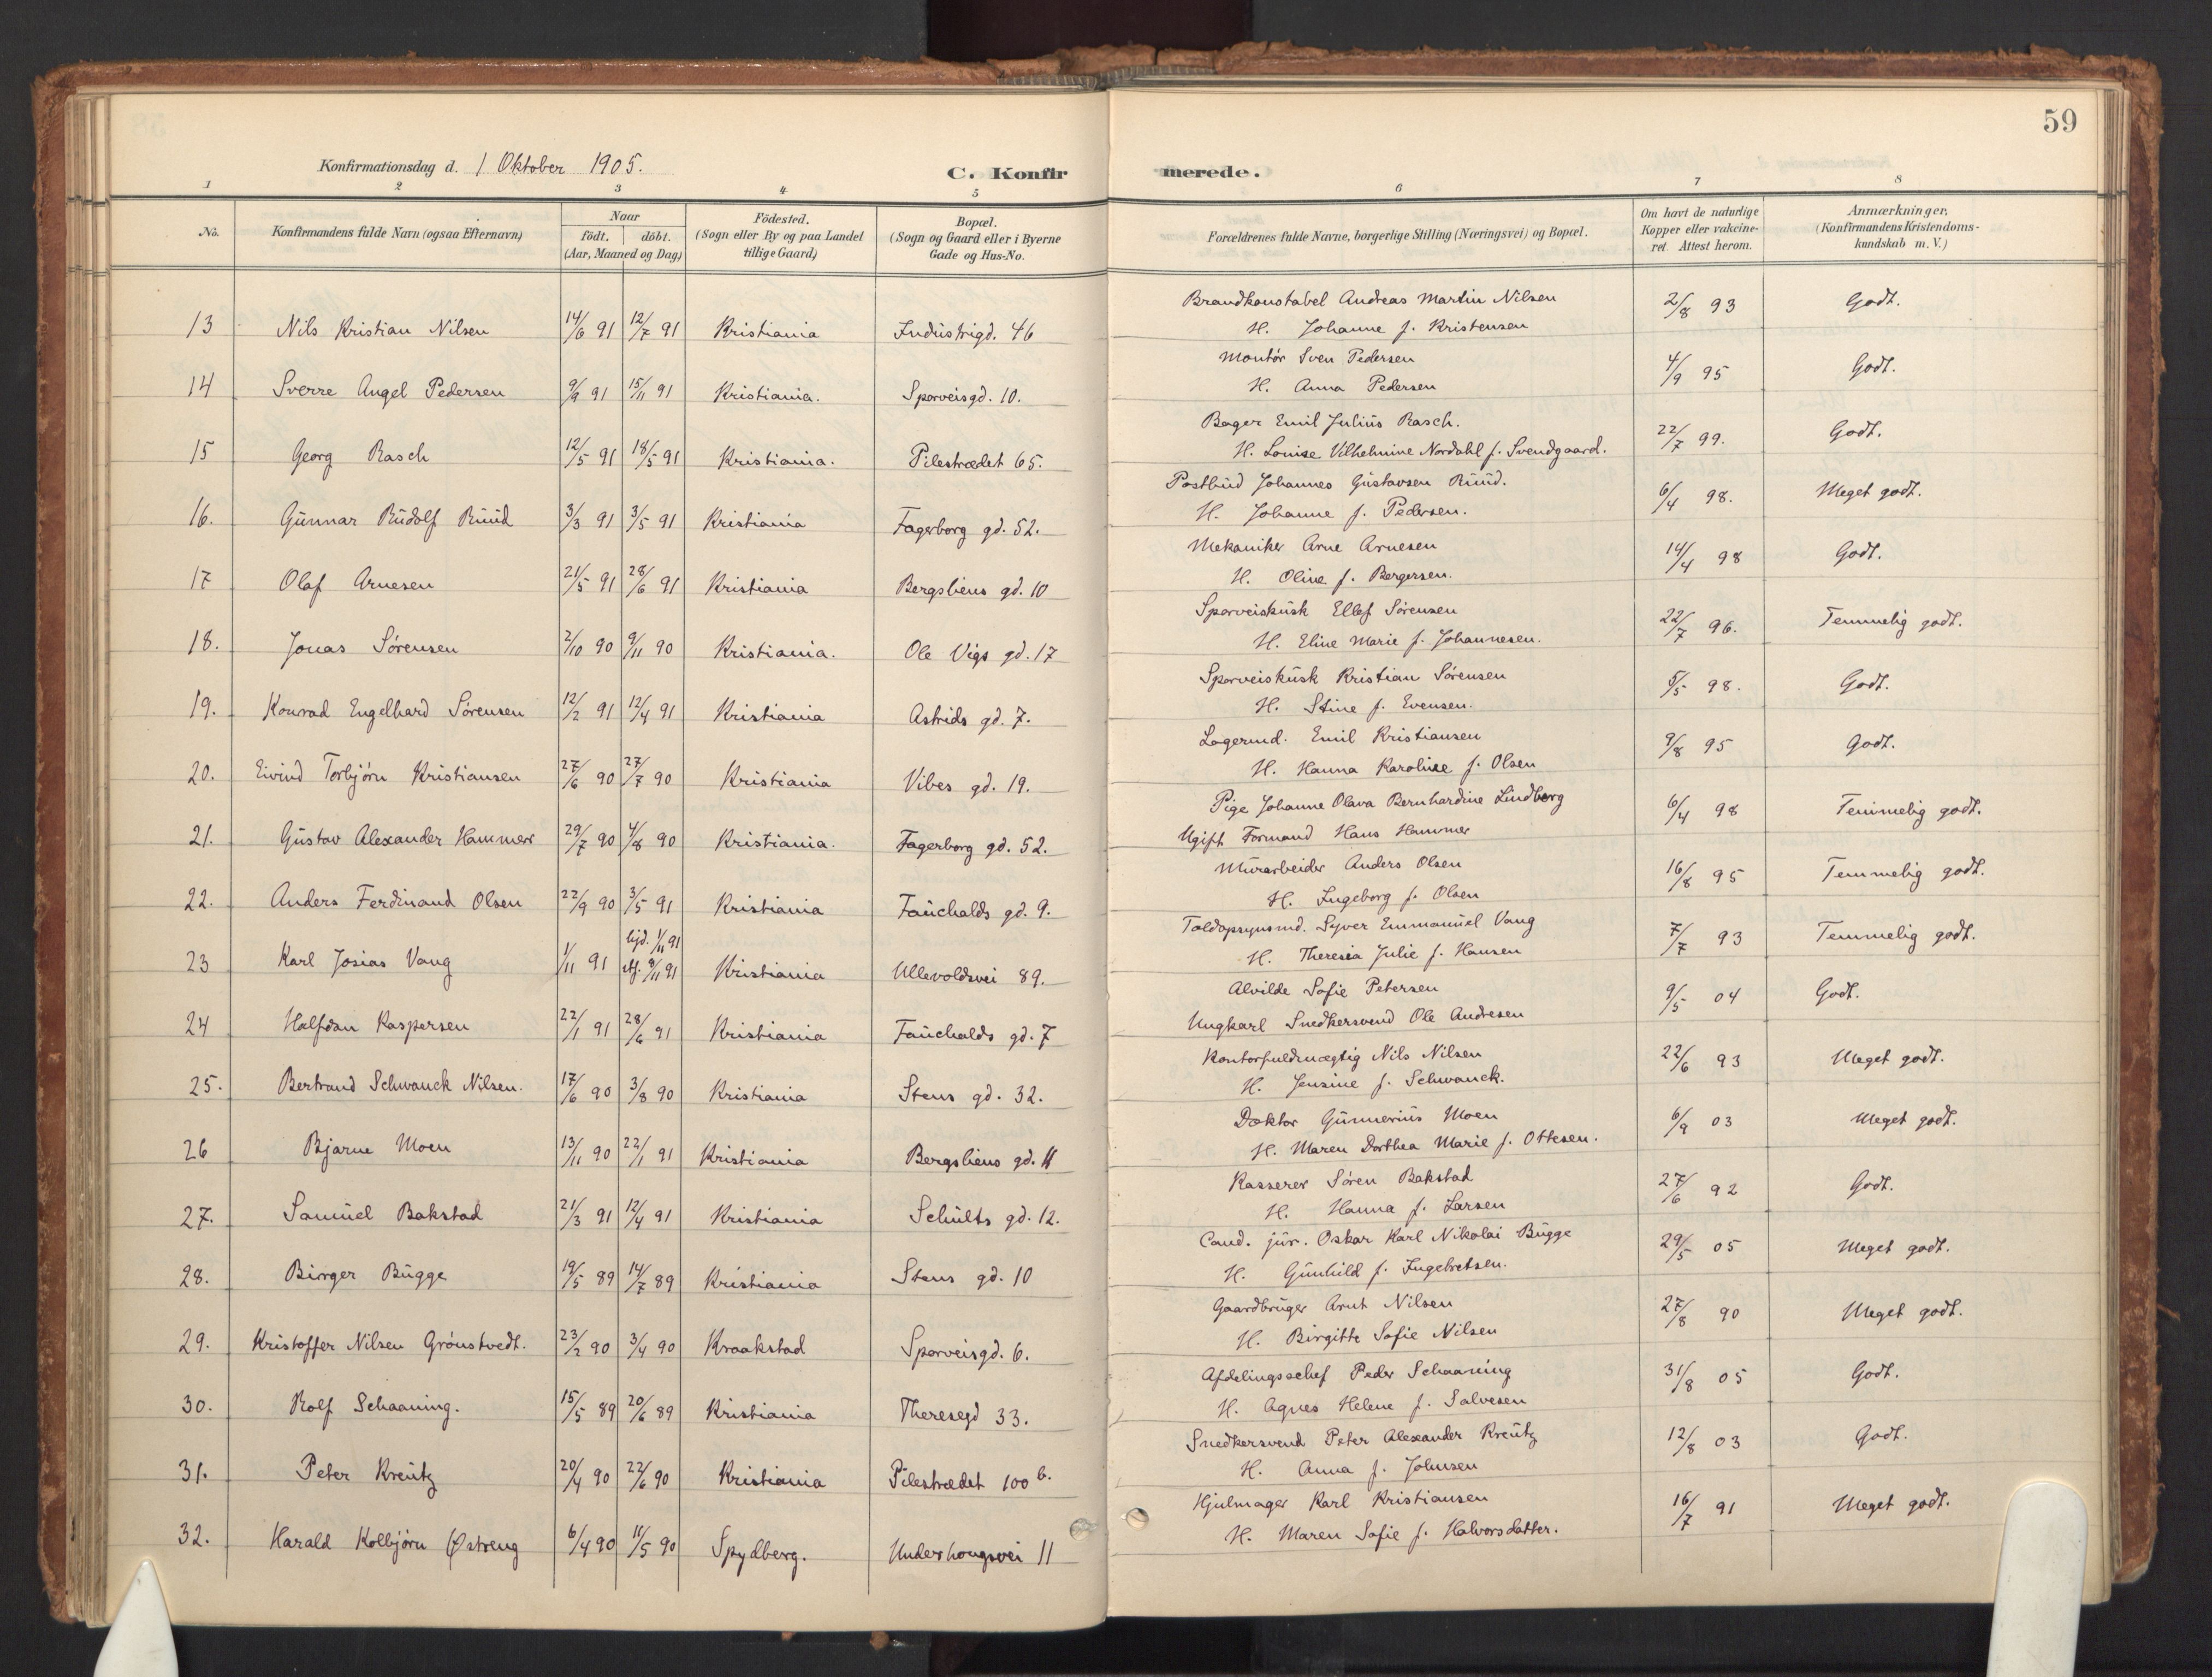 59
Konfirmationsdag d. 1 Oktober 1905.
C. Konfirmerede.
1 2 3 4 5 6 7 8
No. Konfirmandens fulde Navn (ogsaa Efternavn) Naar födt. döbt. (Aar, Maaned og Dag) Födested. (Sogn eller By og paa Landet tillige Gaard) Bopæl. (Sogn og Gaard eller i Byerne Gade og Hus-No. Forældrenes fulde Navne, borgerlige Stilling (Næringsvei) og Bopæl. Om havt de naturlige Kopper eller vakcineret. Attest herom. Anmærkninger. (Konfirmandens Kristendomskundskab m. V.)
13 Nils Kristian Nilsen 14/6 91 12/7 91 Kristiania Industrigd. 46 Brandkonstabel Andreas Martin Nilsen 2/8 93 Godt.
H. Johanne f. Kristensen
14 Sverre Angel Pedersen 9/9 91 15/11 91 Kristiania. Sporveisgd. 10. Montör Sven Pedersen 4/9 95 Godt.
H. Anna Pedersen
15 Georg Rasch 12/5 91 18/5 91 Kristiania. Pilestrædet 65. Bager Emil Julius Rasch. 22/7 99. Godt.
H. Louise Vilhelmine Nordahl f. Svendgaard.
16. Gunnar Rudolf Ruud 3/3 91 3/5 91 Kristiania Fagerborg gd. 52. Postbud Johannes Gustavsen Ruud. 6/4 98. Meget godt.
H. Johanne f. Pedersen.
17 Olaf Arnesen 21/5 91 28/6 91 Kristiania Bergsliens gd. 10 Mekaniker Arne Arnesen 14/4 98 Godt.
H. Oline f. Bergersen.
18. Jonas Sörensen 2/10 90 9/11 90 Kristiania. Ole Vigs gd. 17 Sporveiskusk Ellef Sörensen 22/7 96. Temmelig godt.
H. Eline Marie f. Johannesen.
19. Konrad Engelhard Sörensen 12/2 91 12/4 91 Kristiania Astrids gd. 7. Sporveiskusk Kristian Sörensen 5/5 98. Godt.
H. Stine f. Evensen.
20. Eivind Torbjörn Kristiansen 27/6 90 27/7 90 Kristiania Vibes gd. 19. Lagermd. Emil Kristiansen 9/8 95 Godt.
H. Hanna Karoline f. Olsen
21. Gustav Alexander Hammer 29/7 90 4/8 90 Kristiania. Fagerborg gd. 52. Pige Johanne Olava Bernhardine Lindberg 6/4 98 Temmelig godt.
Ugift Formand Hans Hammer
22. Anders Ferdinand Olsen 22/9 90 3/5 91 Kristiania Fauchalds gd. 9. Murarbeider Anders Olsen 16/8 95 Temmelig godt.
H. Ingeborg f. Olsen
23 Karl Josias Vang 1/11 91 hjd. 1/11 91 stf. 9/11 91 Kristiania Ullevoldsvei 89. Toldopsynsmd. Syver Emmanuel Vang 7/7 93 Temmelig godt.
H. Theresia Julie f. Hansen
24 Halfdan Kaspersen 22/1 91 28/6 91 Kristiania Fauchalds gd. 7 Alvilde Sofie Petersen 9/5 04 Godt.
Ungkarl Snedkersvend Ole Andresen
25. Bertrand Schwanck Nilsen. 17/6 90 3/8 90 Kristiania Stens gd. 32. Kontorfuldmægtig Nils Nilsen 22/6 93 Meget godt.
H. Jensine f. Schwanck.
26 Bjarne Moen 13/11 90 22/1 91 Kristiania Bergsliens gd. 11 Doktor Gunnerius Moen 6/9 03 Meget godt.
H. Maren Dorthea Marie f. Ottesen.
27. Samuel Bakstad 21/3 91 12/4 91 Kristiania Schults gd. 12. Kasserer Sören Bakstad 27/6 92 Godt.
H. Hanna f. Larsen
28. Birger Bugge 19/5 89 14/7 89 Kristiania Stens gd. 10 Cand. jur. Oskar Karl Nikolai Bugge 29/5 05 Meget godt.
H. Gunhild f. Ingebretsen.
29. Kristoffer Nilsen Grönstvedt. 23/2 90 3/4 90 Kraakstad Sporveisgd. 6. Gaardbruger Arnt Nilsen 27/8 90 Meget godt.
H. Birgitte Sofie Nilsen
30. Rolf Schaaning. 15/5 89 20/6 89 Kristiania Theresegd 33. Afdelingschef Peder Schaaning 31/8 05 Godt.
H. Agnes Helene f. Salvesen
31. Peter Kreutz 20/4 90 22/6 90 Kristiania Pilestrædet 100 b. Snedkersvend Peter Alexander Kreutz 12/8 03 Godt.
H. Anna f. Johnsen
32. Harald Kolbjörn Østreng 6/4 90 11/5 90 Spydberg. Underhaugsvei 11 Hjulmager Karl Kristiansen 16/7 91 Meget godt.
H. Maren Sofie f. Halvorsdatter.